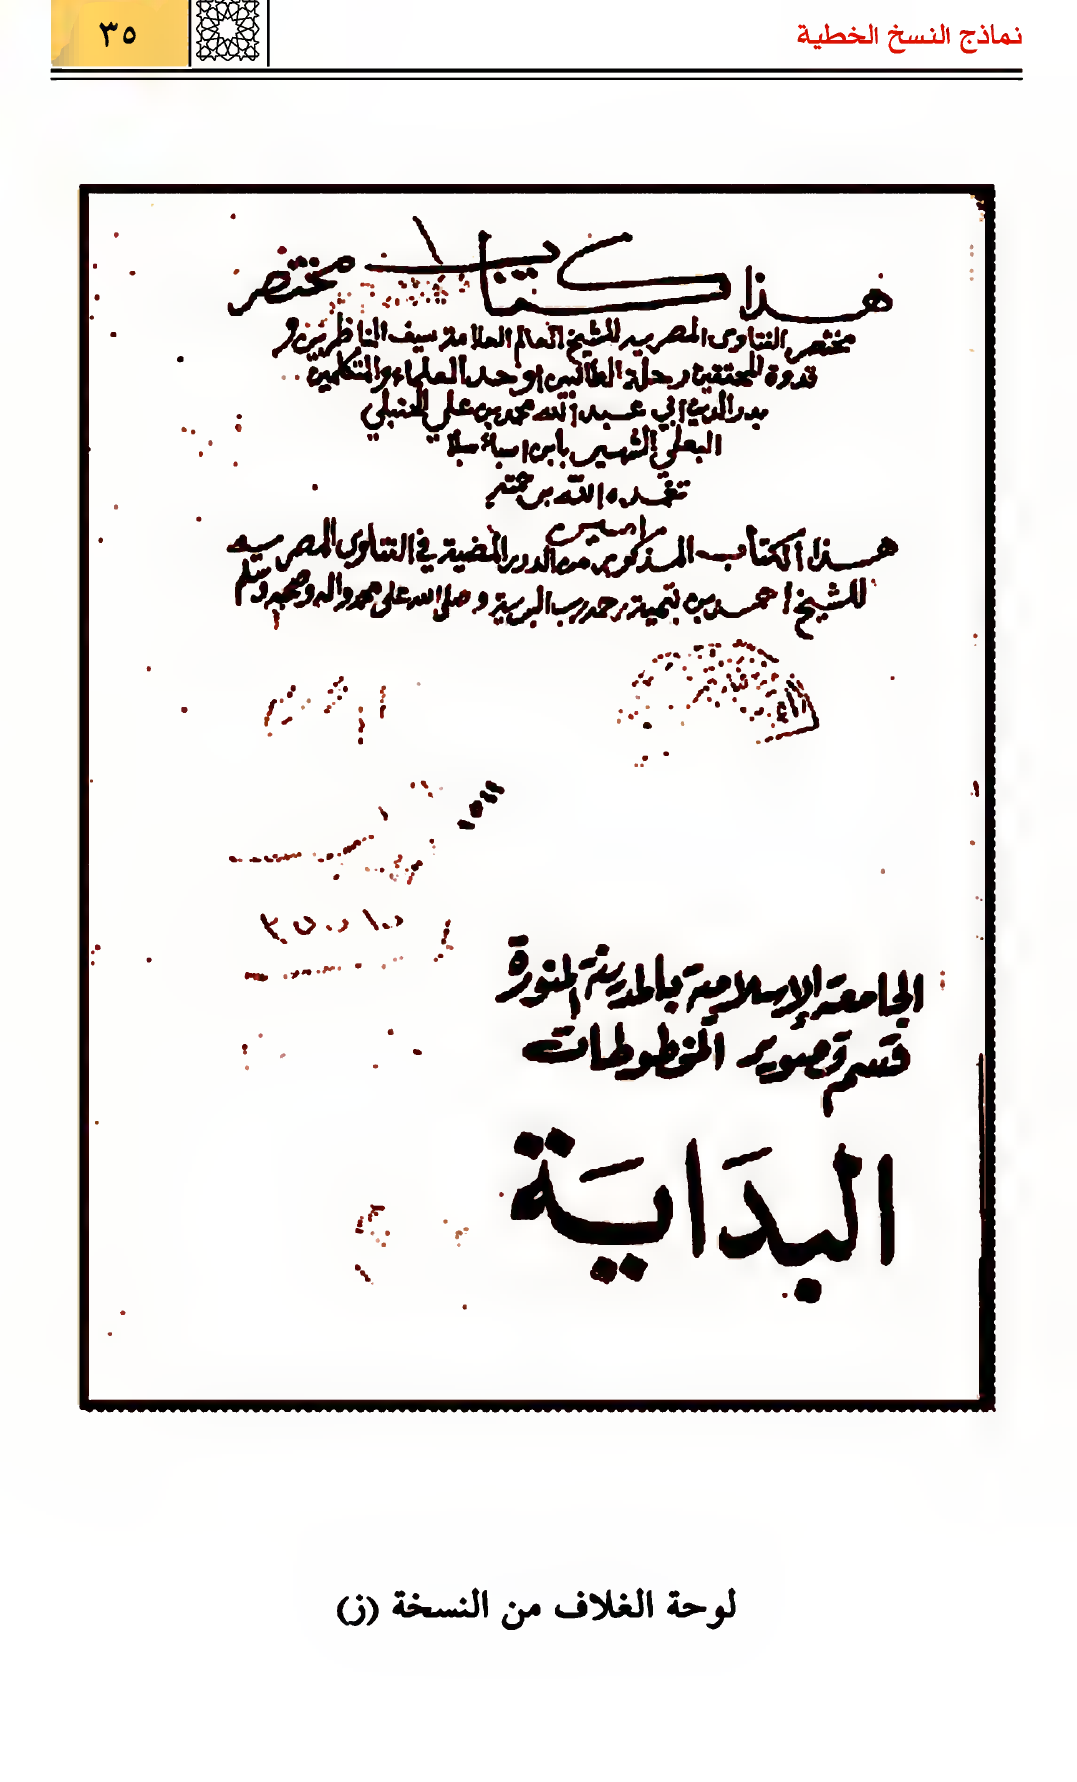 نماذج النسخ الخطية
٣٥
هذا كتاب مختصر
مختصر الفتاوى المصريه للشيخ العالم العلامة سيف الناظرين و
قدوة المحققين رحلة الطالبين اوحد العلماء والمتكلمين
بدر الدين ابي عبد الله محمد بن علي الحنبلي
البعلي الشهير بابن اسباسلا
تغمده الله برحمته
امين
هذا الكتاب المذكور من الدرر المضية في الفتاوى المصريه
للشيخ احمد بن تيمية رحمه رب البرية وصلى الله على محمد واله وصحبه وسلم
الجامعة الإسلامية بالمدينة المنورة
قسم تصوير المخطوطات
البدَايَة
لوحة الغلاف من النسخة (ز)